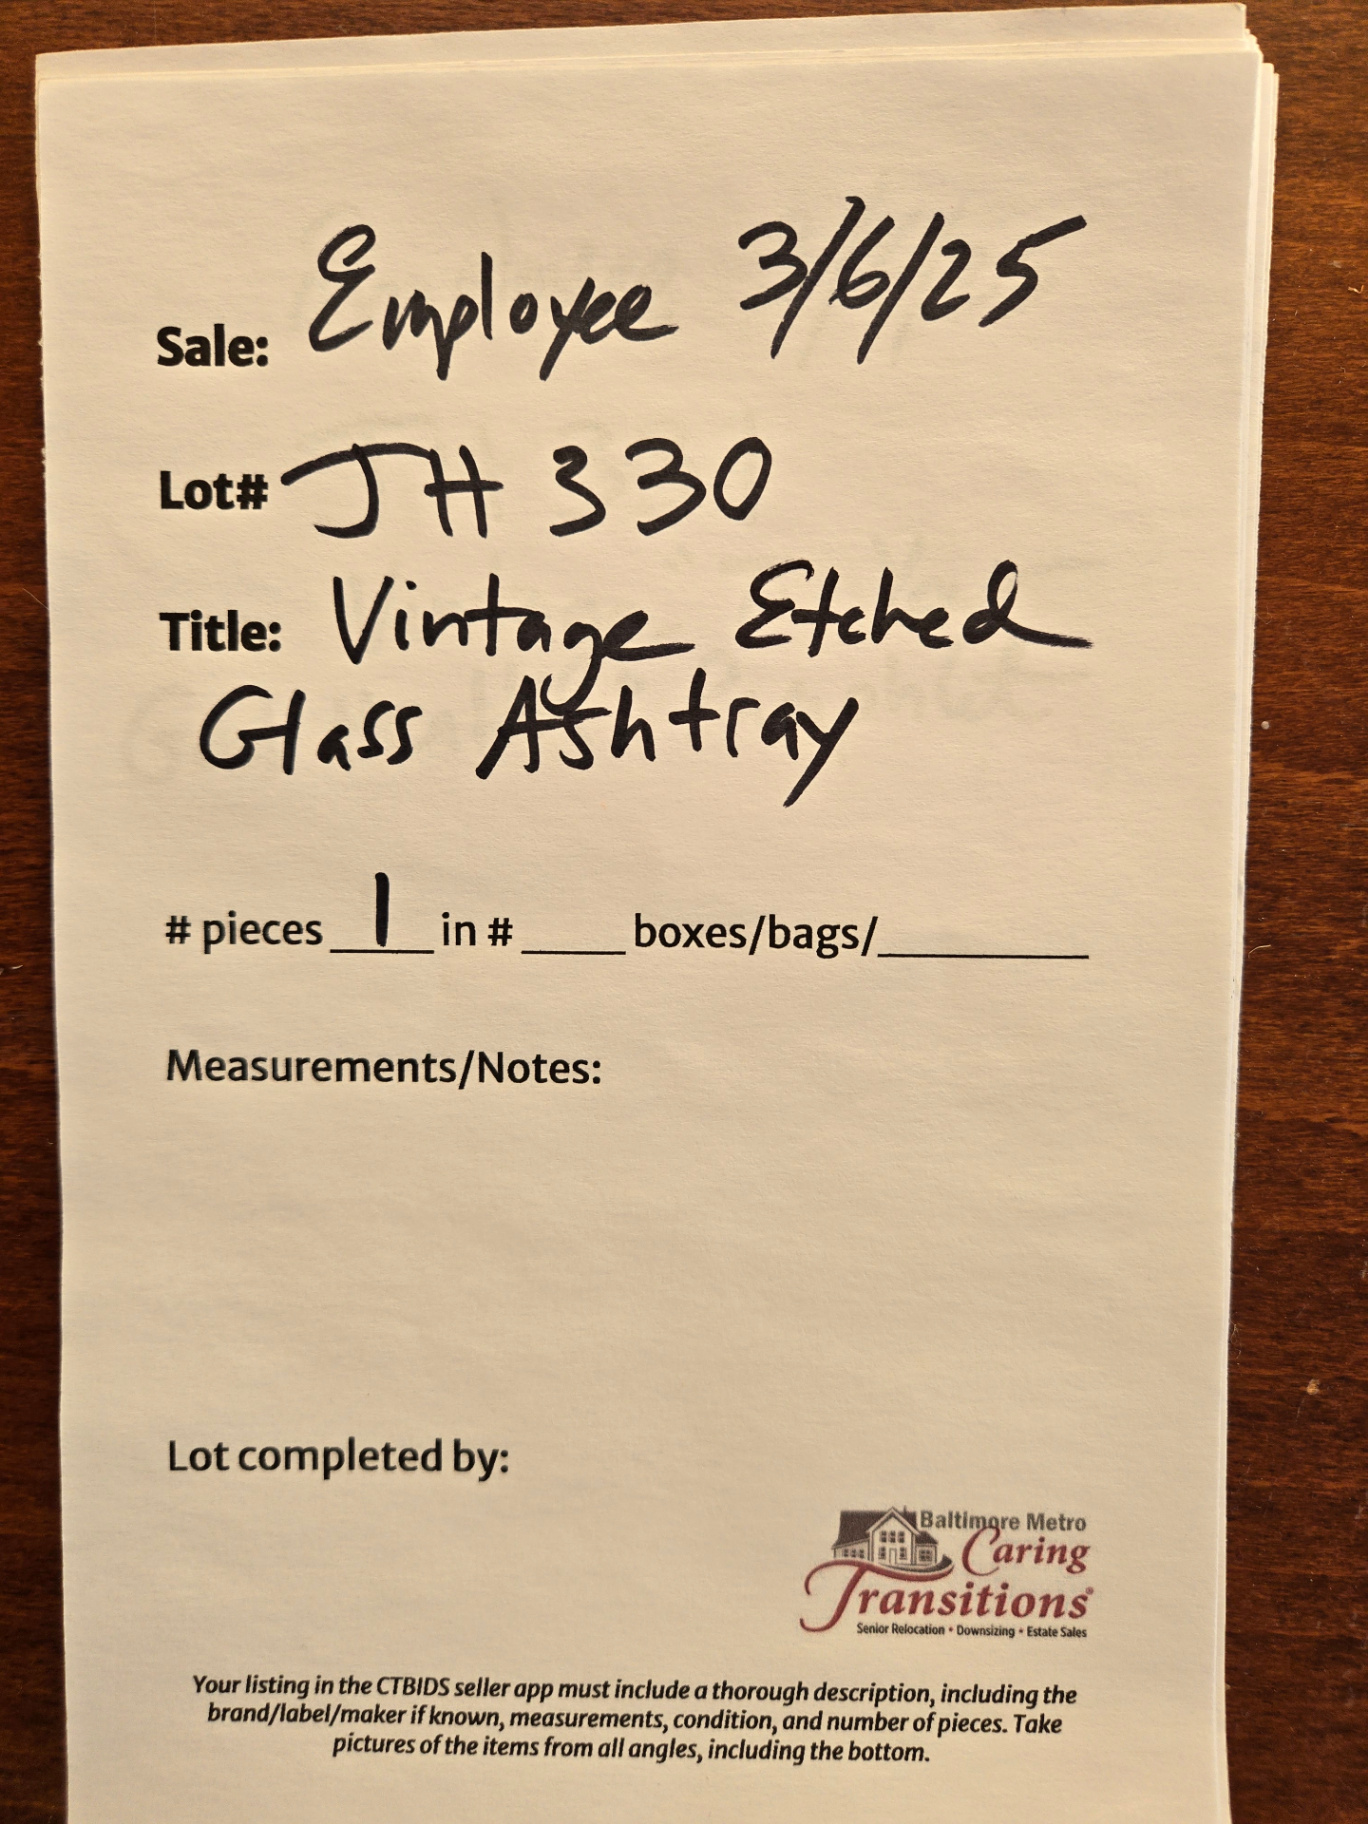 Sale: Employee 3/6/25
Lot# JH 330
Title: Vintage Etched
Glass Ashtray
# pieces 1 in # ____ boxes/bags/________
Measurements/Notes:
Lot completed by:
Baltimore Metro
Caring
Transitions®
Senior Relocation • Downsizing • Estate Sales
Your listing in the CTBIDS seller app must include a thorough description, including the
brand/label/maker if known, measurements, condition, and number of pieces. Take
pictures of the items from all angles, including the bottom.